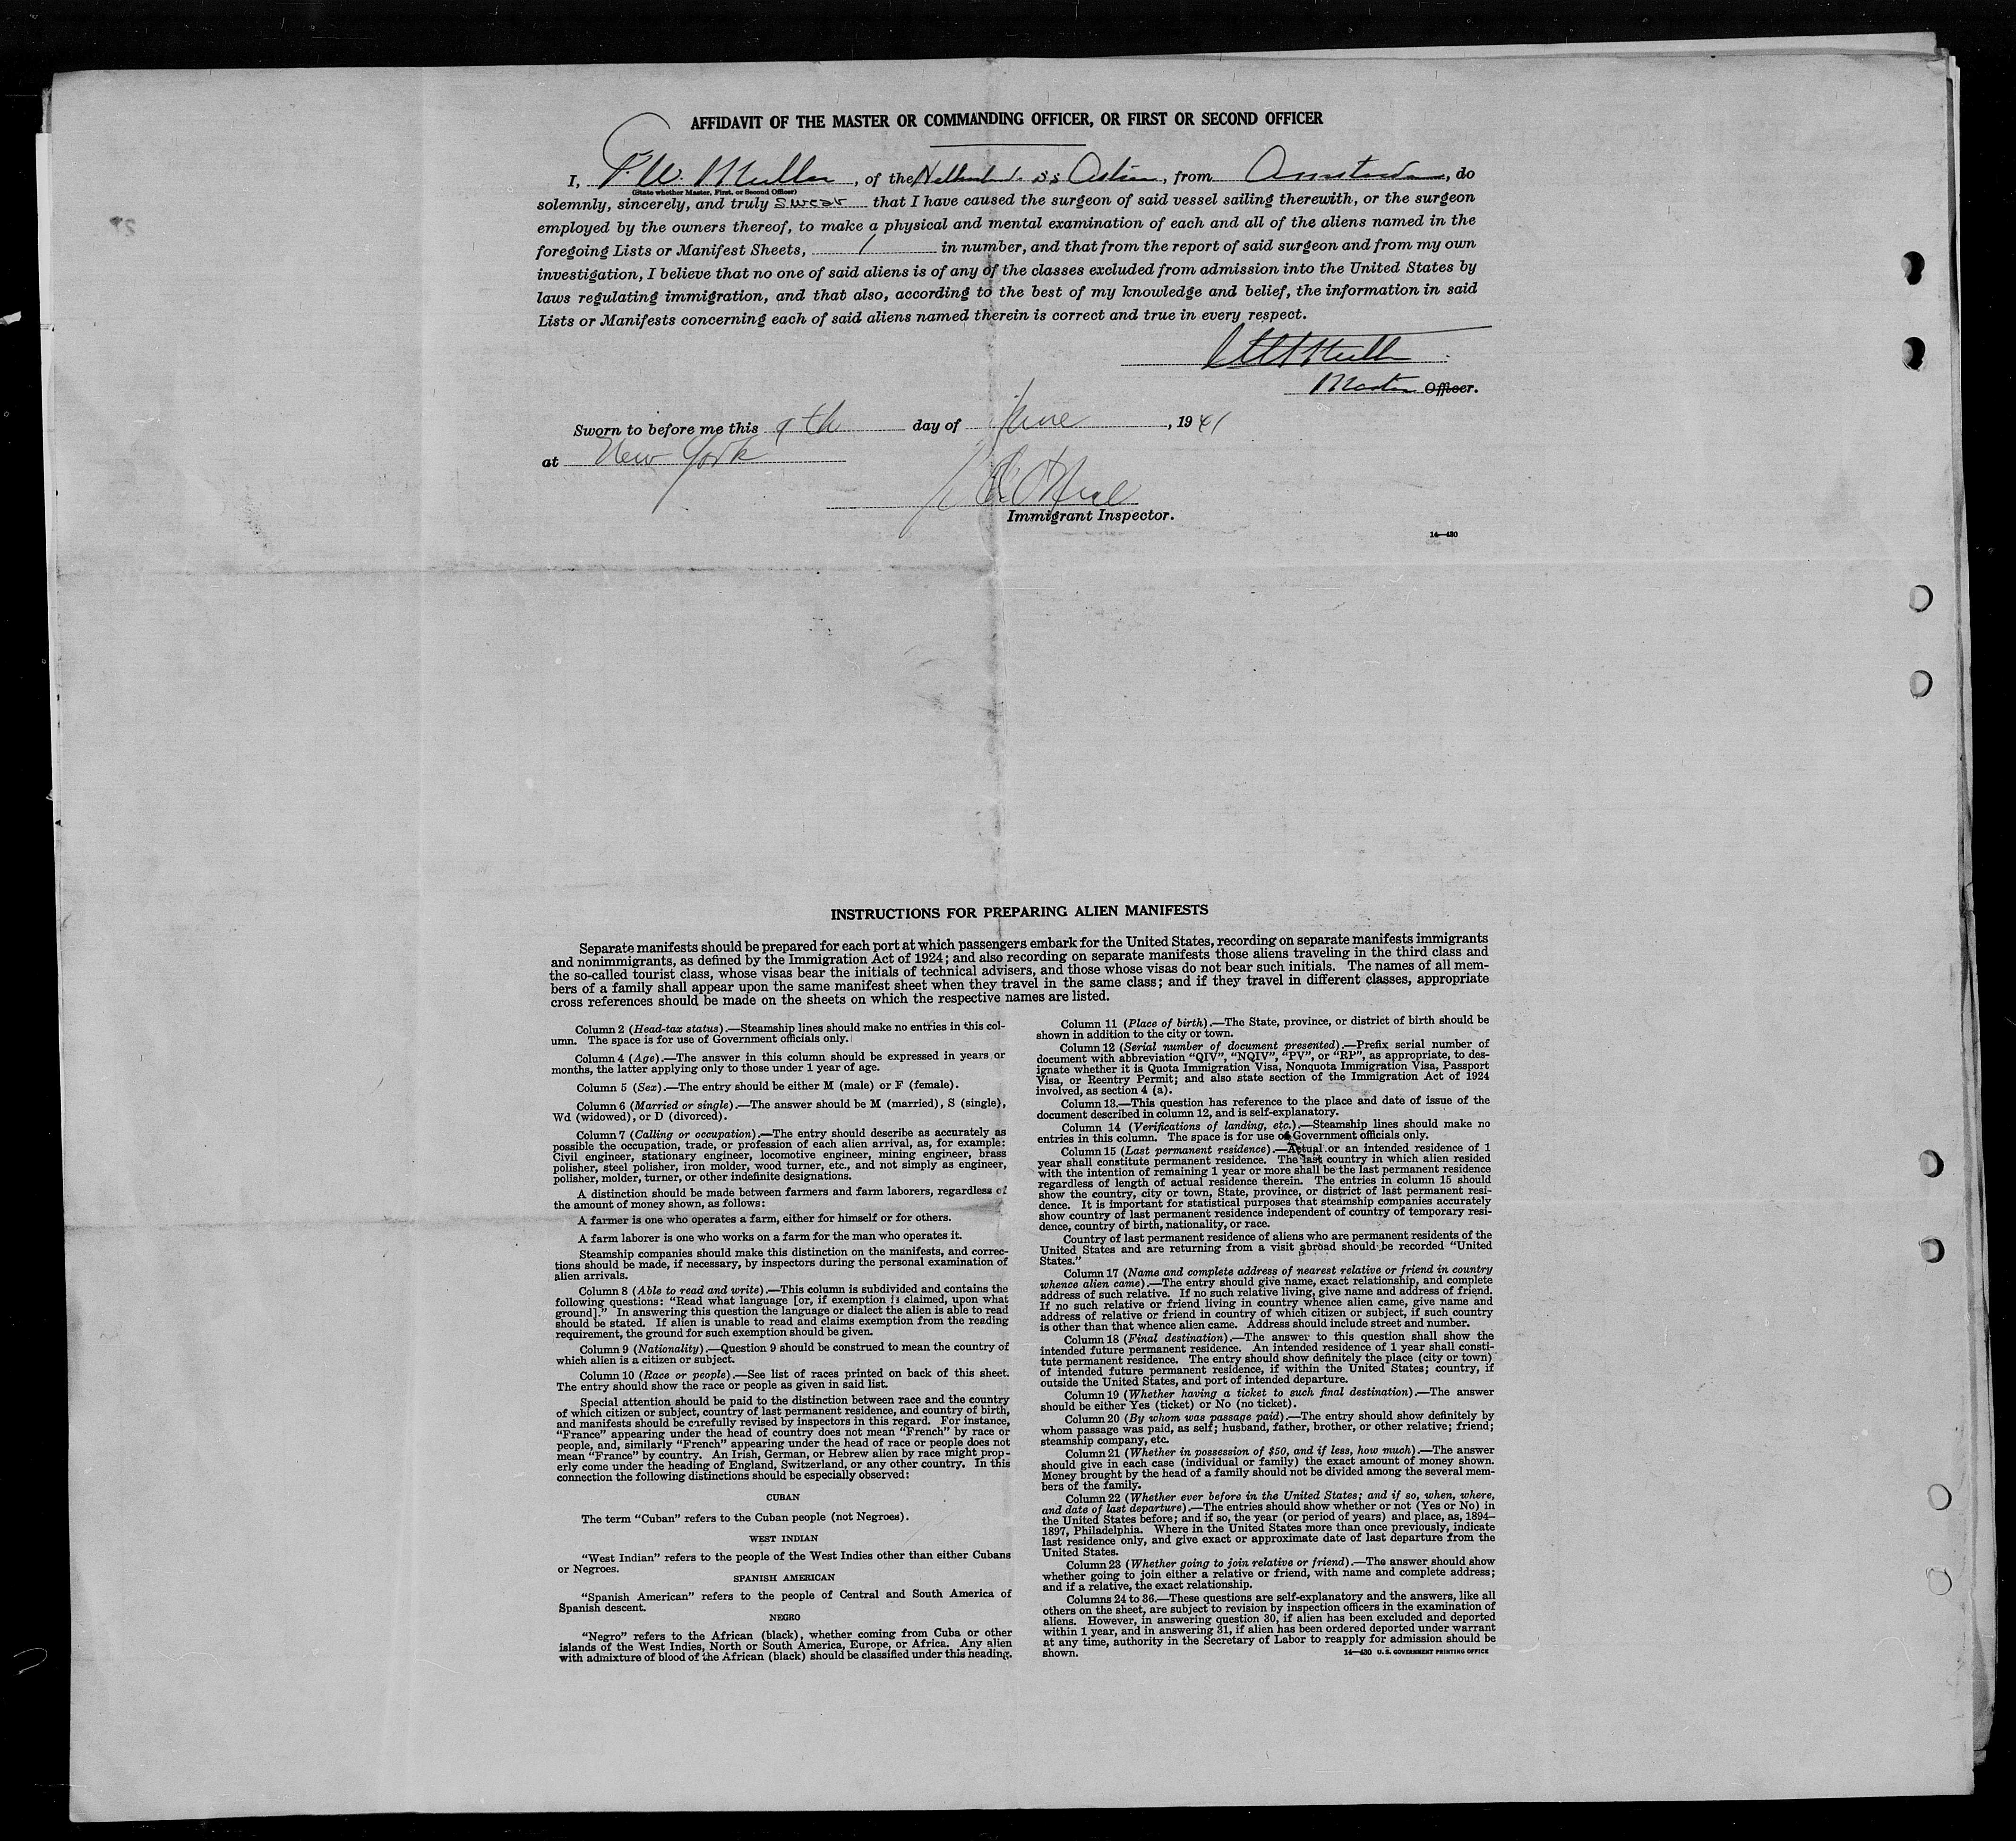 AFFIDAVIT OF THE MASTER OR COMMANDING OFFICER, OR FIRST OR SECOND OFFICER
I, P.W. Muller, of the Netherland. SS, from Amsterdam, do
(State whether Master, First, or Second Officer)
solemnly, sincerely, and truly swear that I have caused the surgeon of said vessel sailing therewith, or the surgeon
employed by the owners thereof, to make a physical and mental examination of each and all of the aliens named in the
foregoing Lists or Manifest Sheets, 1 in number, and that from the report of said surgeon and from my own
investigation, I believe that no one of said aliens is of any of the classes excluded from admission into the United States by
laws regulating immigration, and that also, according to the best of my knowledge and belief, the information in said
Lists or Manifests concerning each of said aliens named therein is correct and true in every respect.
Muller
Master Officer.
Sworn to before me this 9th day of June, 1941
at New York
Immigrant Inspector.
14—430
INSTRUCTIONS FOR PREPARING ALIEN MANIFESTS
Separate manifests should be prepared for each port at which passengers embark for the United States, recording on separate manifests immigrants
and nonimmigrants, as defined by the Immigration Act of 1924; and also recording on separate manifests those aliens traveling in the third class and
the so-called tourist class, whose visas bear the initials of technical advisers, and those whose visas do not bear such initials. The names of all mem-
bers of a family shall appear upon the same manifest sheet when they travel in the same class; and if they travel in different classes, appropriate
cross references should be made on the sheets on which the respective names are listed.
Column 2 (Head-tax status).—Steamship lines should make no entries in this col-
umn. The space is for use of Government officials only.
Column 4 (Age).—The answer in this column should be expressed in years or
months, the latter applying only to those under 1 year of age.
Column 5 (Sex).—The entry should be either M (male) or F (female).
Column 6 (Married or single).—The answer should be M (married), S (single),
Wd (widowed), or D (divorced).
Column 7 (Calling or occupation).—The entry should describe as accurately as
possible the occupation, trade, or profession of each alien arrival, as, for example:
Civil engineer, stationary engineer, locomotive engineer, mining engineer, brass
polisher, steel polisher, iron molder, wood turner, etc., and not simply as engineer,
polisher, molder, turner, or other indefinite designations.
A distinction should be made between farmers and farm laborers, regardless of
the amount of money shown, as follows:
A farmer is one who operates a farm, either for himself or for others.
A farm laborer is one who works on a farm for the man who operates it.
Steamship companies should make this distinction on the manifests, and correc-
tions should be made, if necessary, by inspectors during the personal examination of
alien arrivals.
Column 8 (Able to read and write).—This column is subdivided and contains the
following questions: "Read what language [or, if exemption is claimed, upon what
ground]." In answering this question the language or dialect the alien is able to read
should be stated. If alien is unable to read and claims exemption from the reading
requirement, the ground for such exemption should be given.
Column 9 (Nationality).—Question 9 should be construed to mean the country of
which alien is a citizen or subject.
Column 10 (Race or people).—See list of races printed on back of this sheet.
The entry should show the race or people as given in said list.
Special attention should be paid to the distinction between race and the country
of which citizen or subject, country of last permanent residence, and country of birth,
and manifests should be carefully revised by inspectors in this regard. For instance,
"France" appearing under the head of country does not mean "French" by race or
people, and, similarly "French" appearing under the head of race or people does not
mean "France" by country. An Irish, German, or Hebrew alien by race might prop-
erly come under the heading of England, Switzerland, or any other country. In this
connection the following distinctions should be especially observed:
CUBAN
The term "Cuban" refers to the Cuban people (not Negroes).
WEST INDIAN
"West Indian" refers to the people of the West Indies other than either Cubans
or Negroes.
SPANISH AMERICAN
"Spanish American" refers to the people of Central and South America of
Spanish descent.
NEGRO
"Negro" refers to the African (black), whether coming from Cuba or other
islands of the West Indies, North or South America, Europe, or Africa. Any alien
with admixture of blood of the African (black) should be classified under this heading.
Column 11 (Place of birth).—The State, province, or district of birth should be
shown in addition to the city or town.
Column 12 (Serial number of document presented).—Prefix serial number of
document with abbreviation "QIV", "NQIV", "PV", or "RP", as appropriate, to des-
ignate whether it is Quota Immigration Visa, Nonquota Immigration Visa, Passport
Visa, or Reentry Permit; and also state section of the Immigration Act of 1924
involved, as section 4 (a).
Column 13.—This question has reference to the place and date of issue of the
document described in column 12, and is self-explanatory.
Column 14 (Verifications of landing, etc.).—Steamship lines should make no
entries in this column. The space is for use of Government officials only.
Column 15 (Last permanent residence).—Actual or an intended residence of 1
year shall constitute permanent residence. The last country in which alien resided
with the intention of remaining 1 year or more shall be the last permanent residence
regardless of length of actual residence therein. The entries in column 15 should
show the country, city or town, State, province, or district of last permanent resi-
dence. It is important for statistical purposes that steamship companies accurately
show country of last permanent residence independent of country of temporary resi-
dence, country of birth, nationality, or race.
Country of last permanent residence of aliens who are permanent residents of the
United States and are returning from a visit abroad should be recorded "United
States."
Column 17 (Name and complete address of nearest relative or friend in country
whence alien came).—The entry should give name, exact relationship, and complete
address of such relative. If no such relative living, give name and address of friend.
If no such relative or friend living in country whence alien came, give name and
address of relative or friend in country of which citizen or subject, if such country
is other than that whence alien came. Address should include street and number.
Column 18 (Final destination).—The answer to this question shall show the
intended future permanent residence. An intended residence of 1 year shall consti-
tute permanent residence. The entry should show definitely the place (city or town)
of intended future permanent residence, if within the United States; country, if
outside the United States, and port of intended departure.
Column 19 (Whether having a ticket to such final destination).—The answer
should be either Yes (ticket) or No (no ticket).
Column 20 (By whom was passage paid).—The entry should show definitely by
whom passage was paid, as self; husband, father, brother, or other relative; friend;
steamship company, etc.
Column 21 (Whether in possession of $50, and if less, how much).—The answer
should give in each case (individual or family) the exact amount of money shown.
Money brought by the head of a family should not be divided among the several mem-
bers of the family.
Column 22 (Whether ever before in the United States; and if so, when, where,
and date of last departure).—The entries should show whether or not (Yes or No) in
the United States before; and if so, the year (or period of years) and place, as, 1894–
1897, Philadelphia. Where in the United States more than once previously, indicate
last residence only, and give exact or approximate date of last departure from the
United States.
Column 23 (Whether going to join relative or friend).—The answer should show
whether going to join either a relative or friend, with name and complete address;
and if a relative, the exact relationship.
Columns 24 to 36.—These questions are self-explanatory and the answers, like all
others on the sheet, are subject to revision by inspection officers in the examination of
aliens. However, in answering question 30, if alien has been excluded and deported
within 1 year, and in answering 31, if alien has been ordered deported under warrant
at any time, authority in the Secretary of Labor to reapply for admission should be
shown.
14—430 U. S. GOVERNMENT PRINTING OFFICE